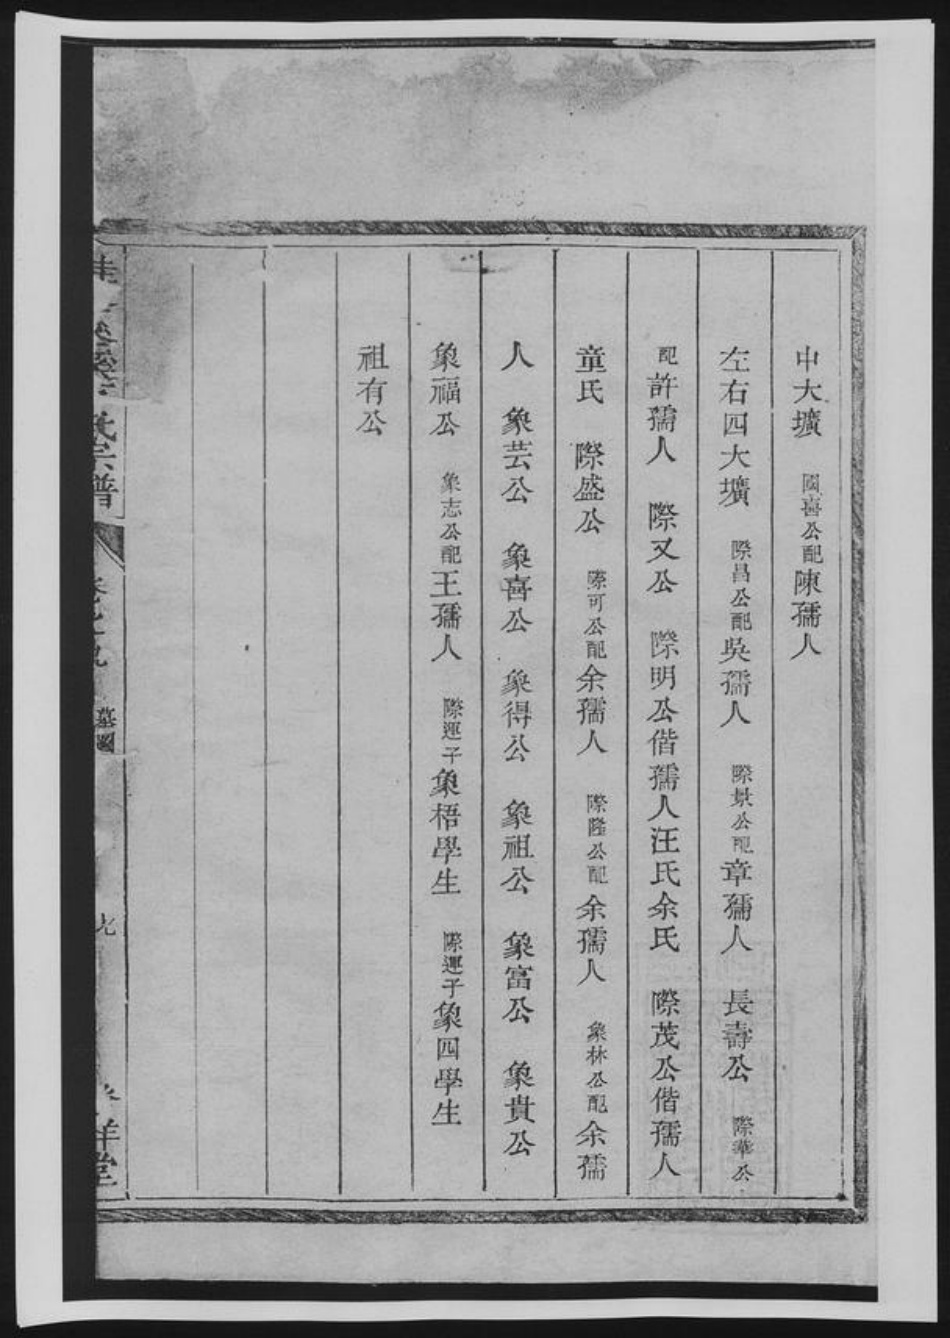 中大壙 國喜公配陳孺人
左右四大壙 際昌公配吳孺人 際景公配章孺人 長壽公 際華公
配許孺人 際又公 際明公偕孺人汪氏余氏 際茂公偕孺人
童氏 際盛公 際可公配余孺人 際隆公配余孺人 象林公配余孺
人 象芸公 象喜公 象得公 象祖公 象富公 象貴公
象福公 象志公配王孺人 際運子象梧學生 際運子象四學生
祖有公
氏宗譜 墓圖 祥堂